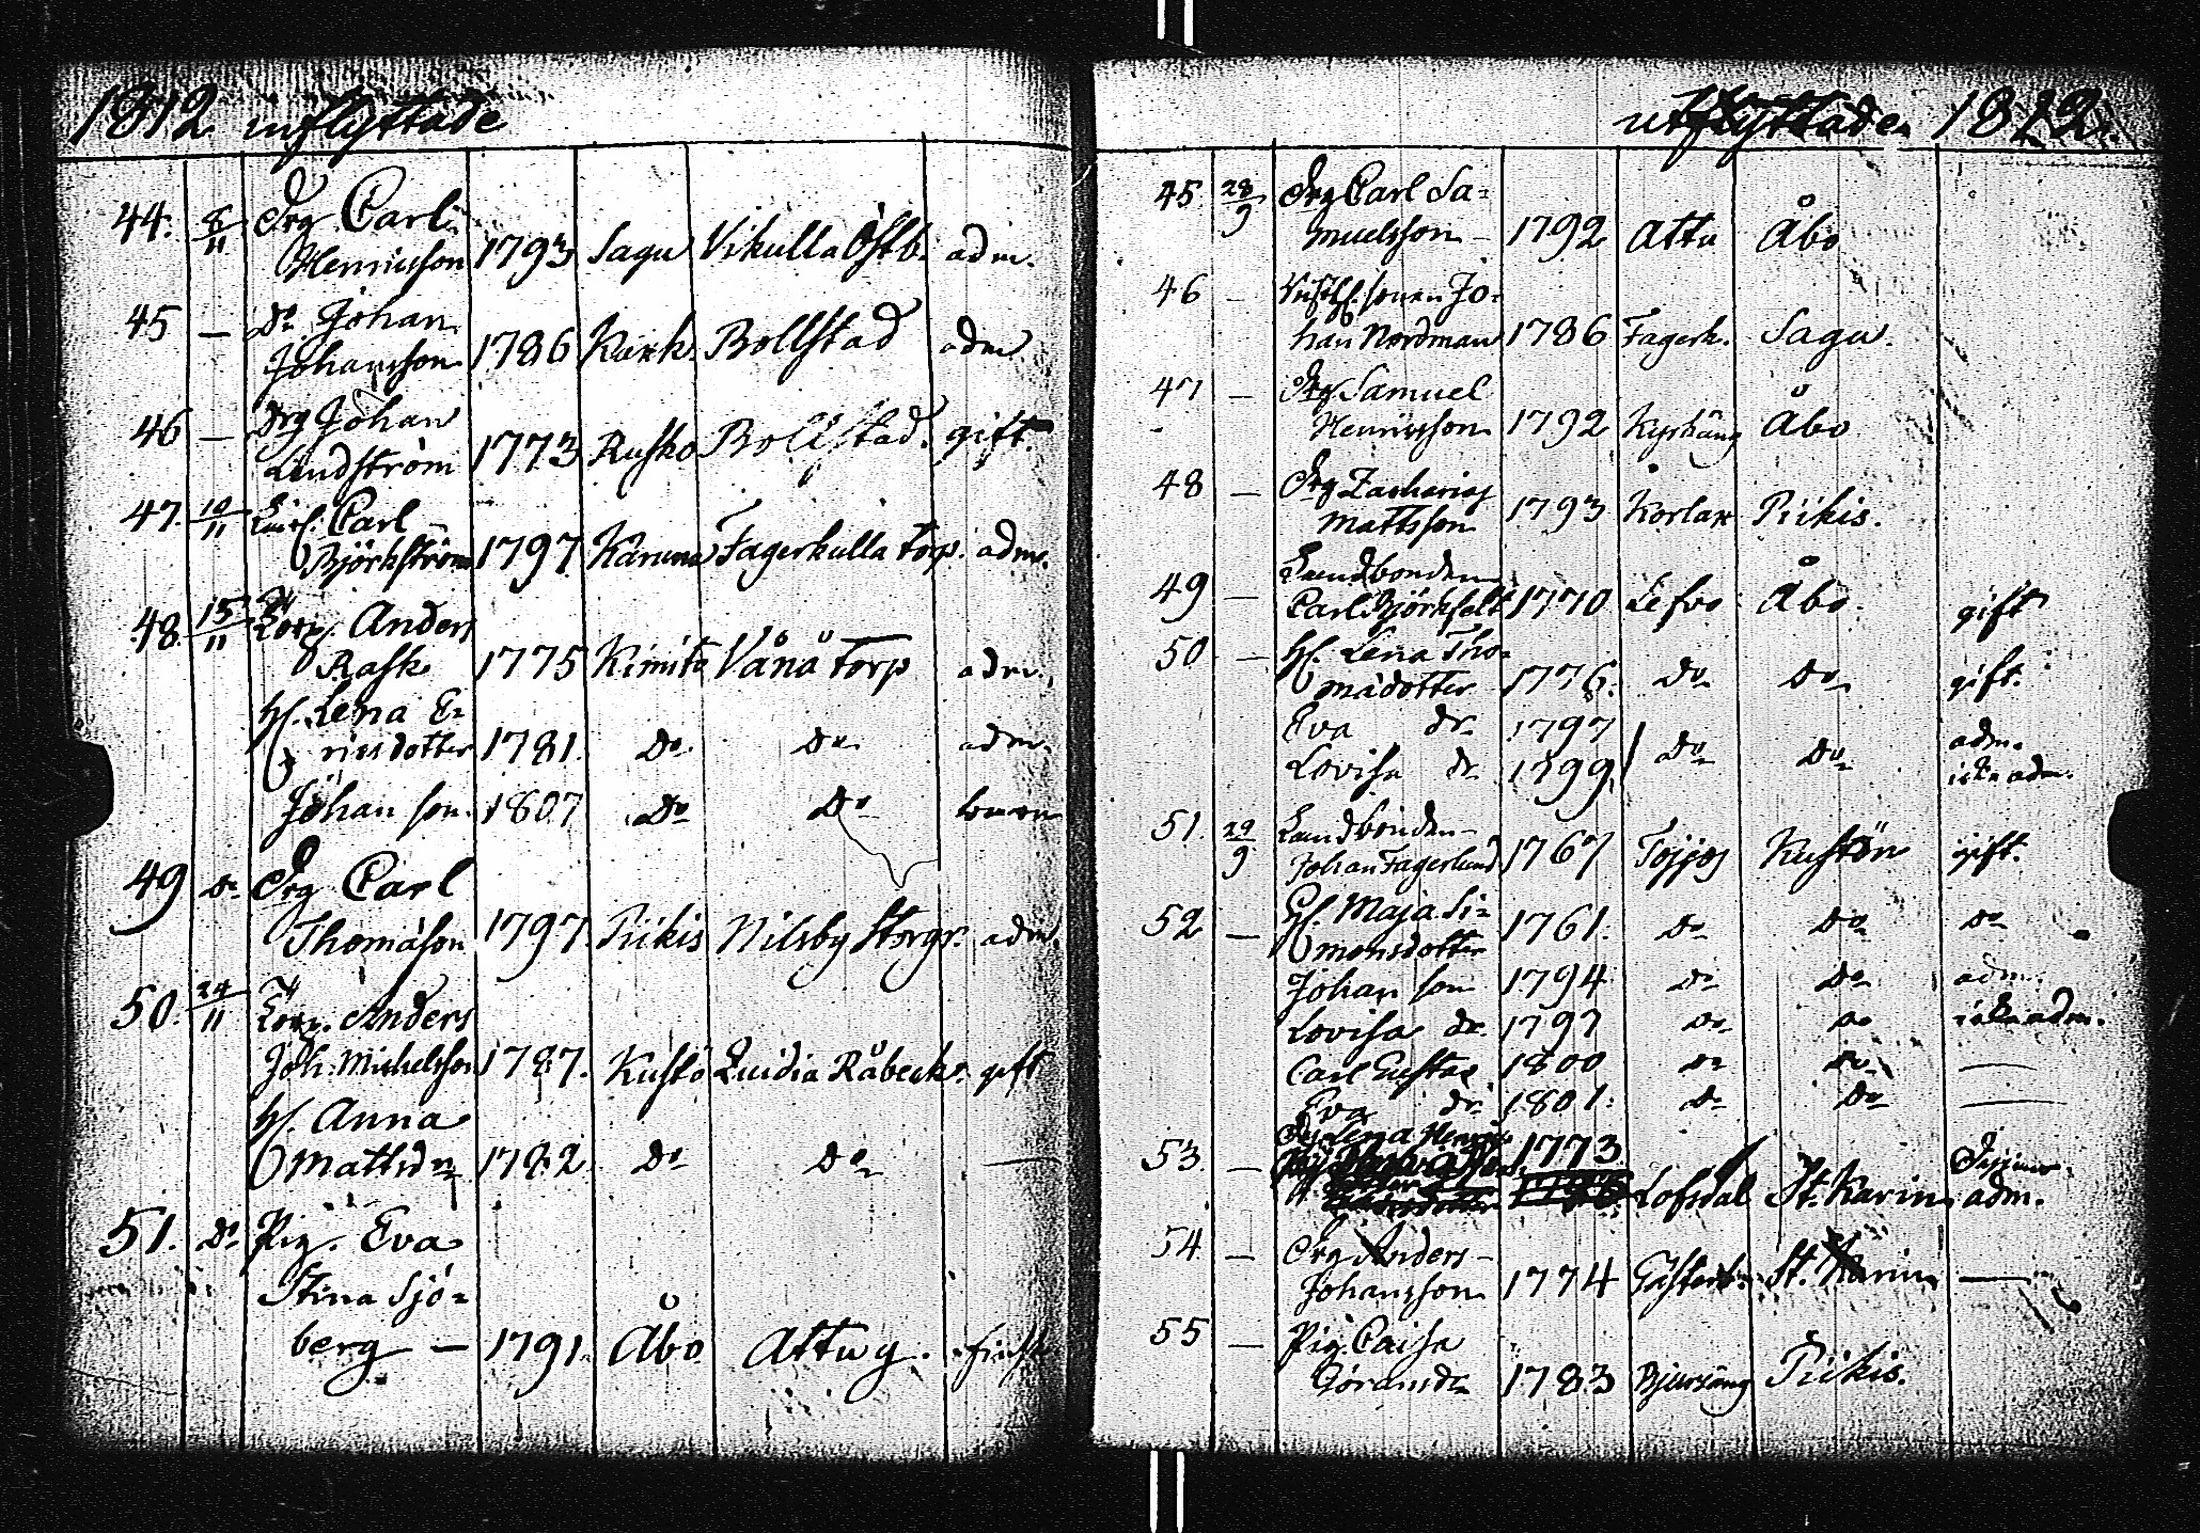 1812. inflyttade
44. 8/11 Drg Carl
Henricsson 1793 Sagu Vikulla Östb. adm.
45 — Do Johan
Johansson 1786 Kark. Bollstad adm
46 — Drg Johan
Lindström 1773 Rusko Bollstad. gift.
47. 10/11 Lärl. Carl
Björkström 1797 Karuna Fagerkulla torp. adm.
48. 15/11 Torp. Anders
Rask 1775 Kimito Vånå Torp adm.
H. Lena E=
ricsdotter 1781. Do Do adm.
Johan son. 1807 Do Do barn
49 Do Drg Carl
Thomasson 1797. Piikis Nilsby Storgr. adm.
50. 24/11 Torp. Anders
Joh. Michelsson 1787. Kustö Råbeck. gift
H. Anna
Mattsdr 1782. Do Do —
51. Do Pig. Eva
Stina Sjö=
berg — 1791. Åbo Attu g.
utflyttade. 1812.
45 28/9 Drg Carl Sa=
muelsson — 1792 Attu Åbo
46 — sonen Jo=
han Nordman 1786 Fagerk. Sagu.
47 — Drg Samuel
Henricsson 1792 Kyrkäng Åbo
48 — Drg Zacharias
Mattsson 1793 Korlax Piikis.
49 — Landbonden
Carl Björkfelt 1770 Lefvo Åbo. gift
50 — H. Lena Tho=
madotter 1776. Do Do gift.
Eva dr. 1797 adm.
Lovisa dr. 1799 Do Do icke adm.
51. 29/9 Landbonden
Johan Fagerlund 1767 Tojjos Kustön gift.
52 — H. Maja Si=
monsdotter 1761. Do Do Do
Johan son 1794 Do Do adm.
Lovisa dr. 1797 Do Do icke adm.
Carl Gustav 1800 Do Do —
Eva dr. 1801. Do Do —
53 — Lena 1773
Lofsdal St. Karins adm.
54 — Drg Anders —
Johansson 1774 Gästerb. St. Karins —
55 — Pig. Caisa
Göransdr 1783 Bjursäng Piikis.